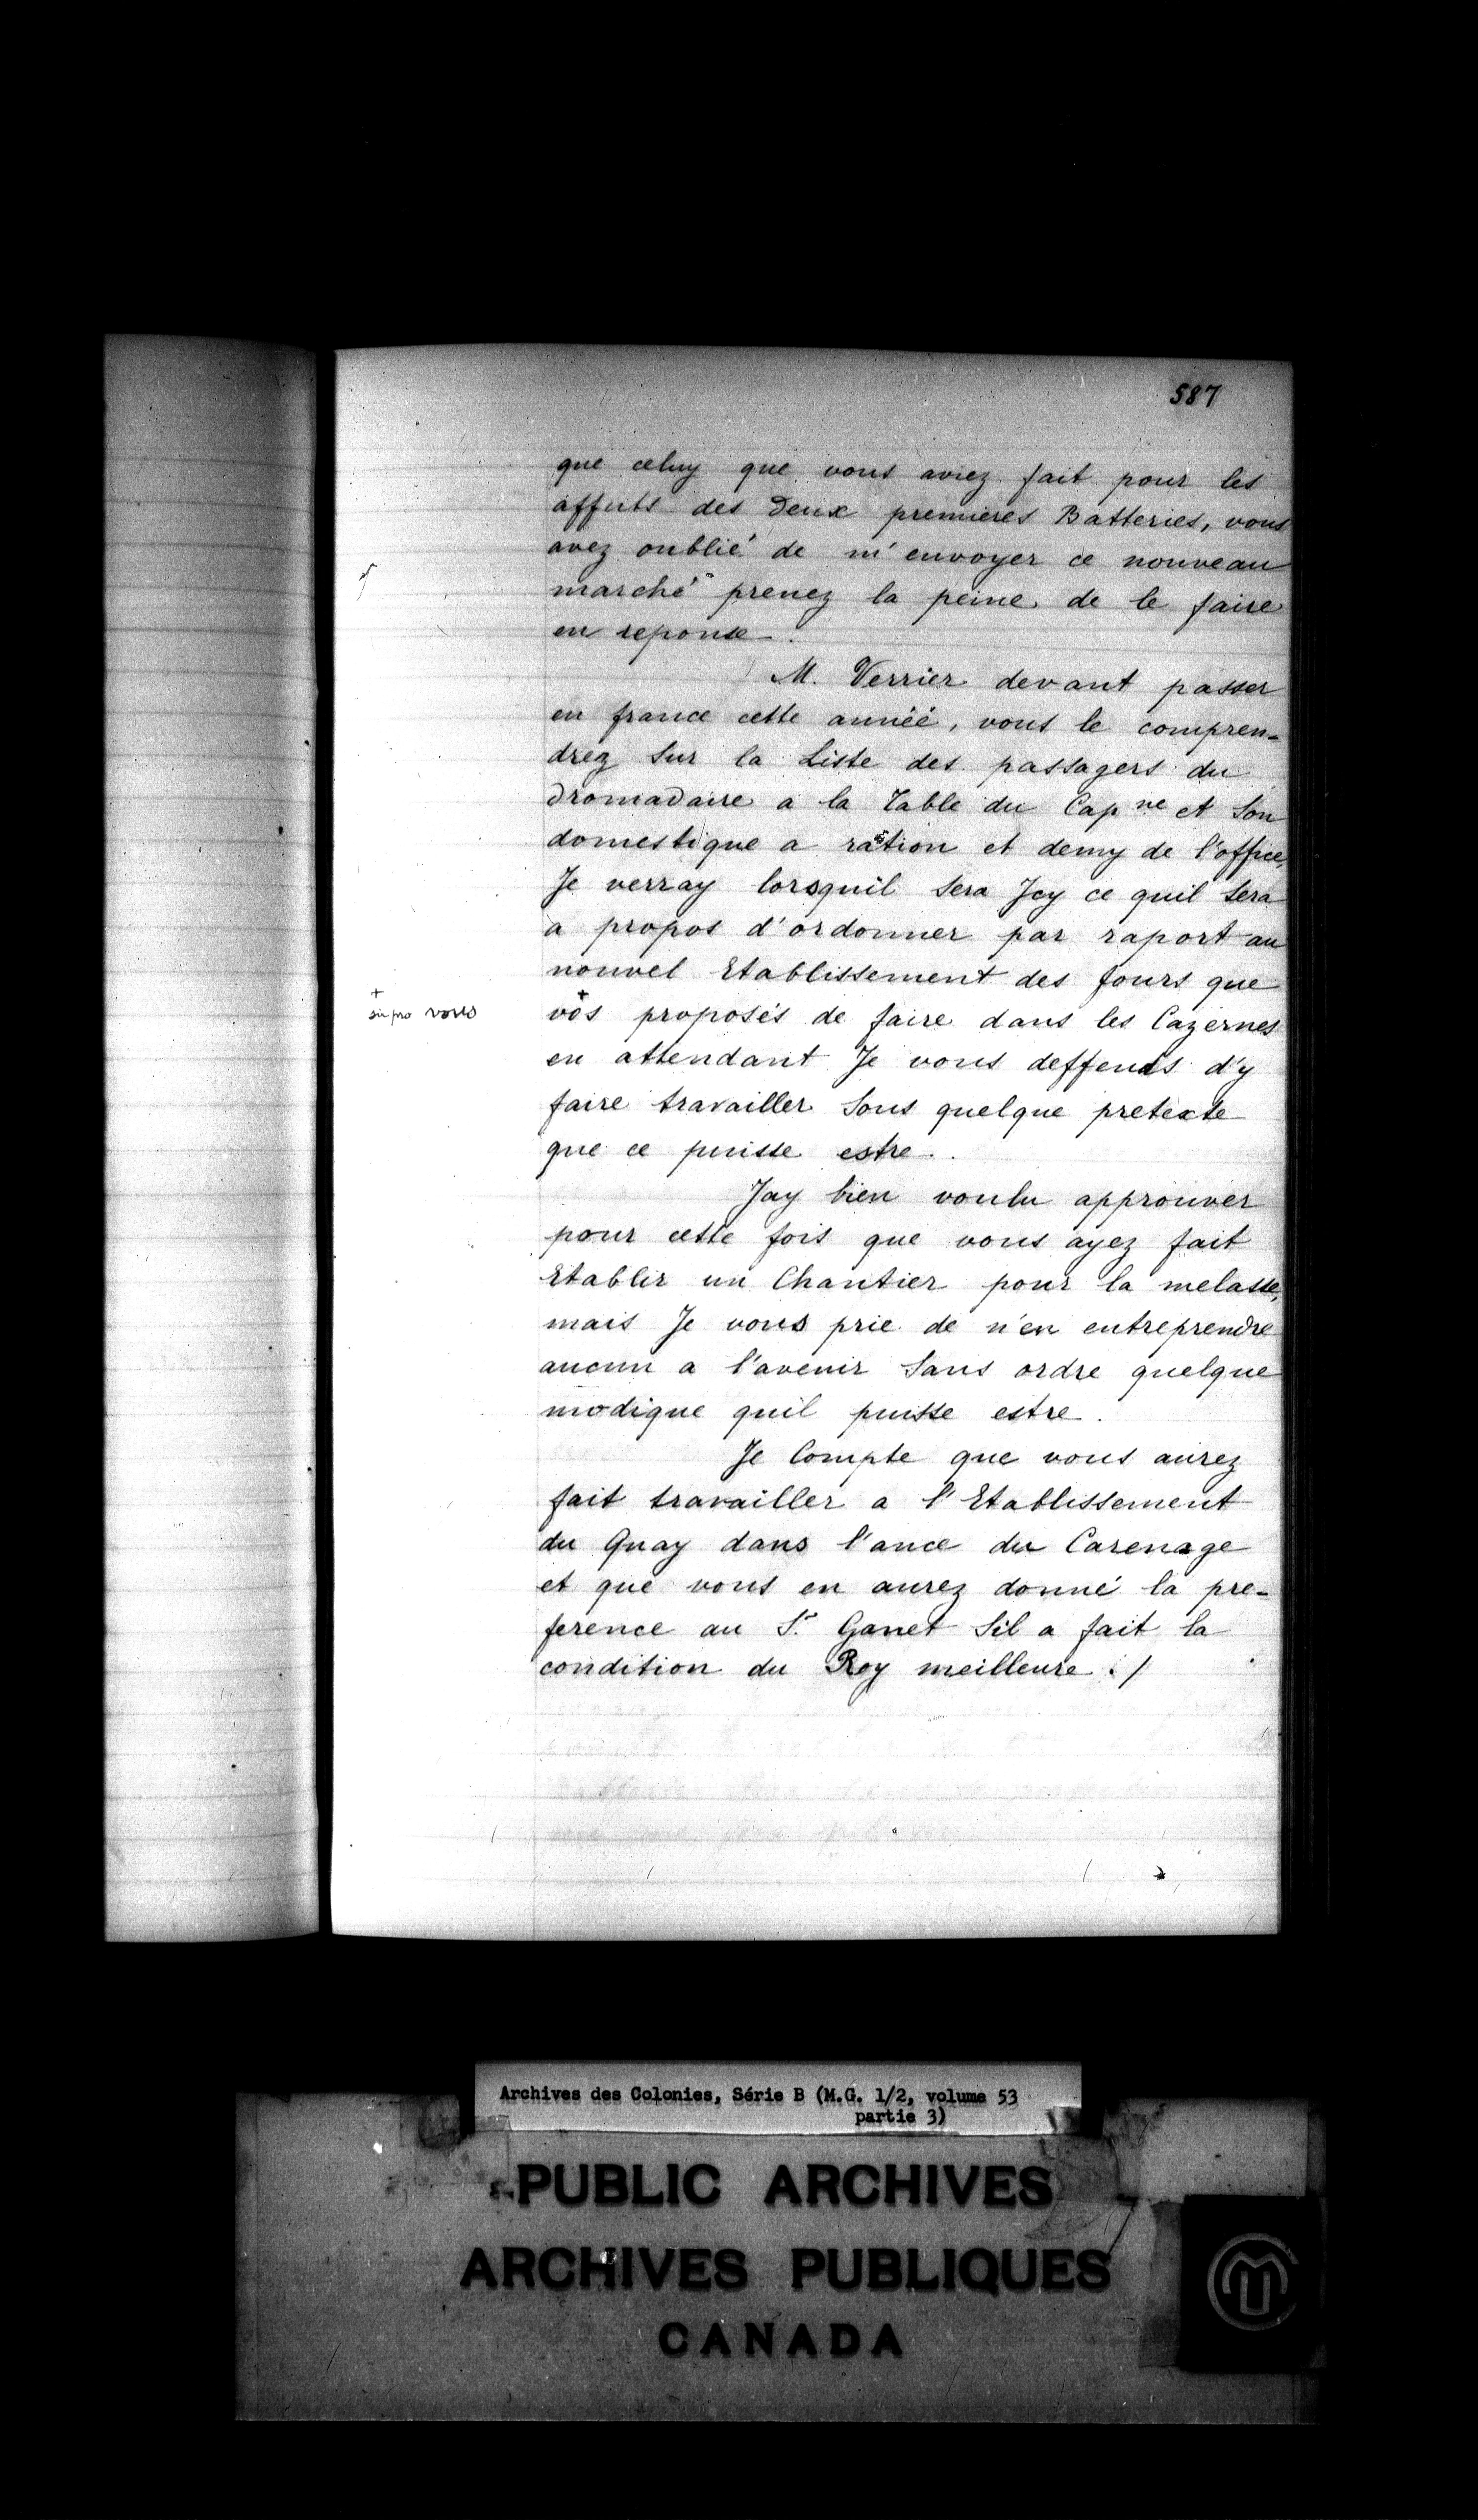 587
que celuy que vous aviez fait pour les
affuts des Deux premieres Batteries, vous
avez oublié de m'envoyer ce nouveau
marché prenez la peine de le faire
en reponse.
M. Verrier devant passer
en france cette année, vous le compren-
drez Sur la Liste des passagers du
Dromadaire a la Table du Cap ne et Son
domestique a ration et demy de l'office,
Je verray lorsquil Sera Jcy ce quil Sera
a propos d'ordonner par raport au
nouvel Etablissement des fours que
+
vos proposés de faire dans les Cazernes
+
sic pro vous
en attendant Je vous deffends d'y
faire travailler Sous quelque pretexte
que ce puisse estre.
Jay bien voulu approuver
pour cette fois que vous ayez fait
Etablir un Chantier pour la melasse,
mais Je vous prie de n'en entreprendre
aucun a l'avenir Sans ordre quelque
modique quil puisse estre.
Je Compte que vous aurez
fait travailler a l'Etablissement
du Quay dans l'ance du Carenage
et que vous en aurez donné la pre-
ference au Sr. Ganet Sil a fait la
condition du Roy meilleure ./
Archives des Colonies, Série B (M.G. 1/2, volume 53
partie 3)
PUBLIC ARCHIVES
ARCHIVES PUBLIQUES
CANADA